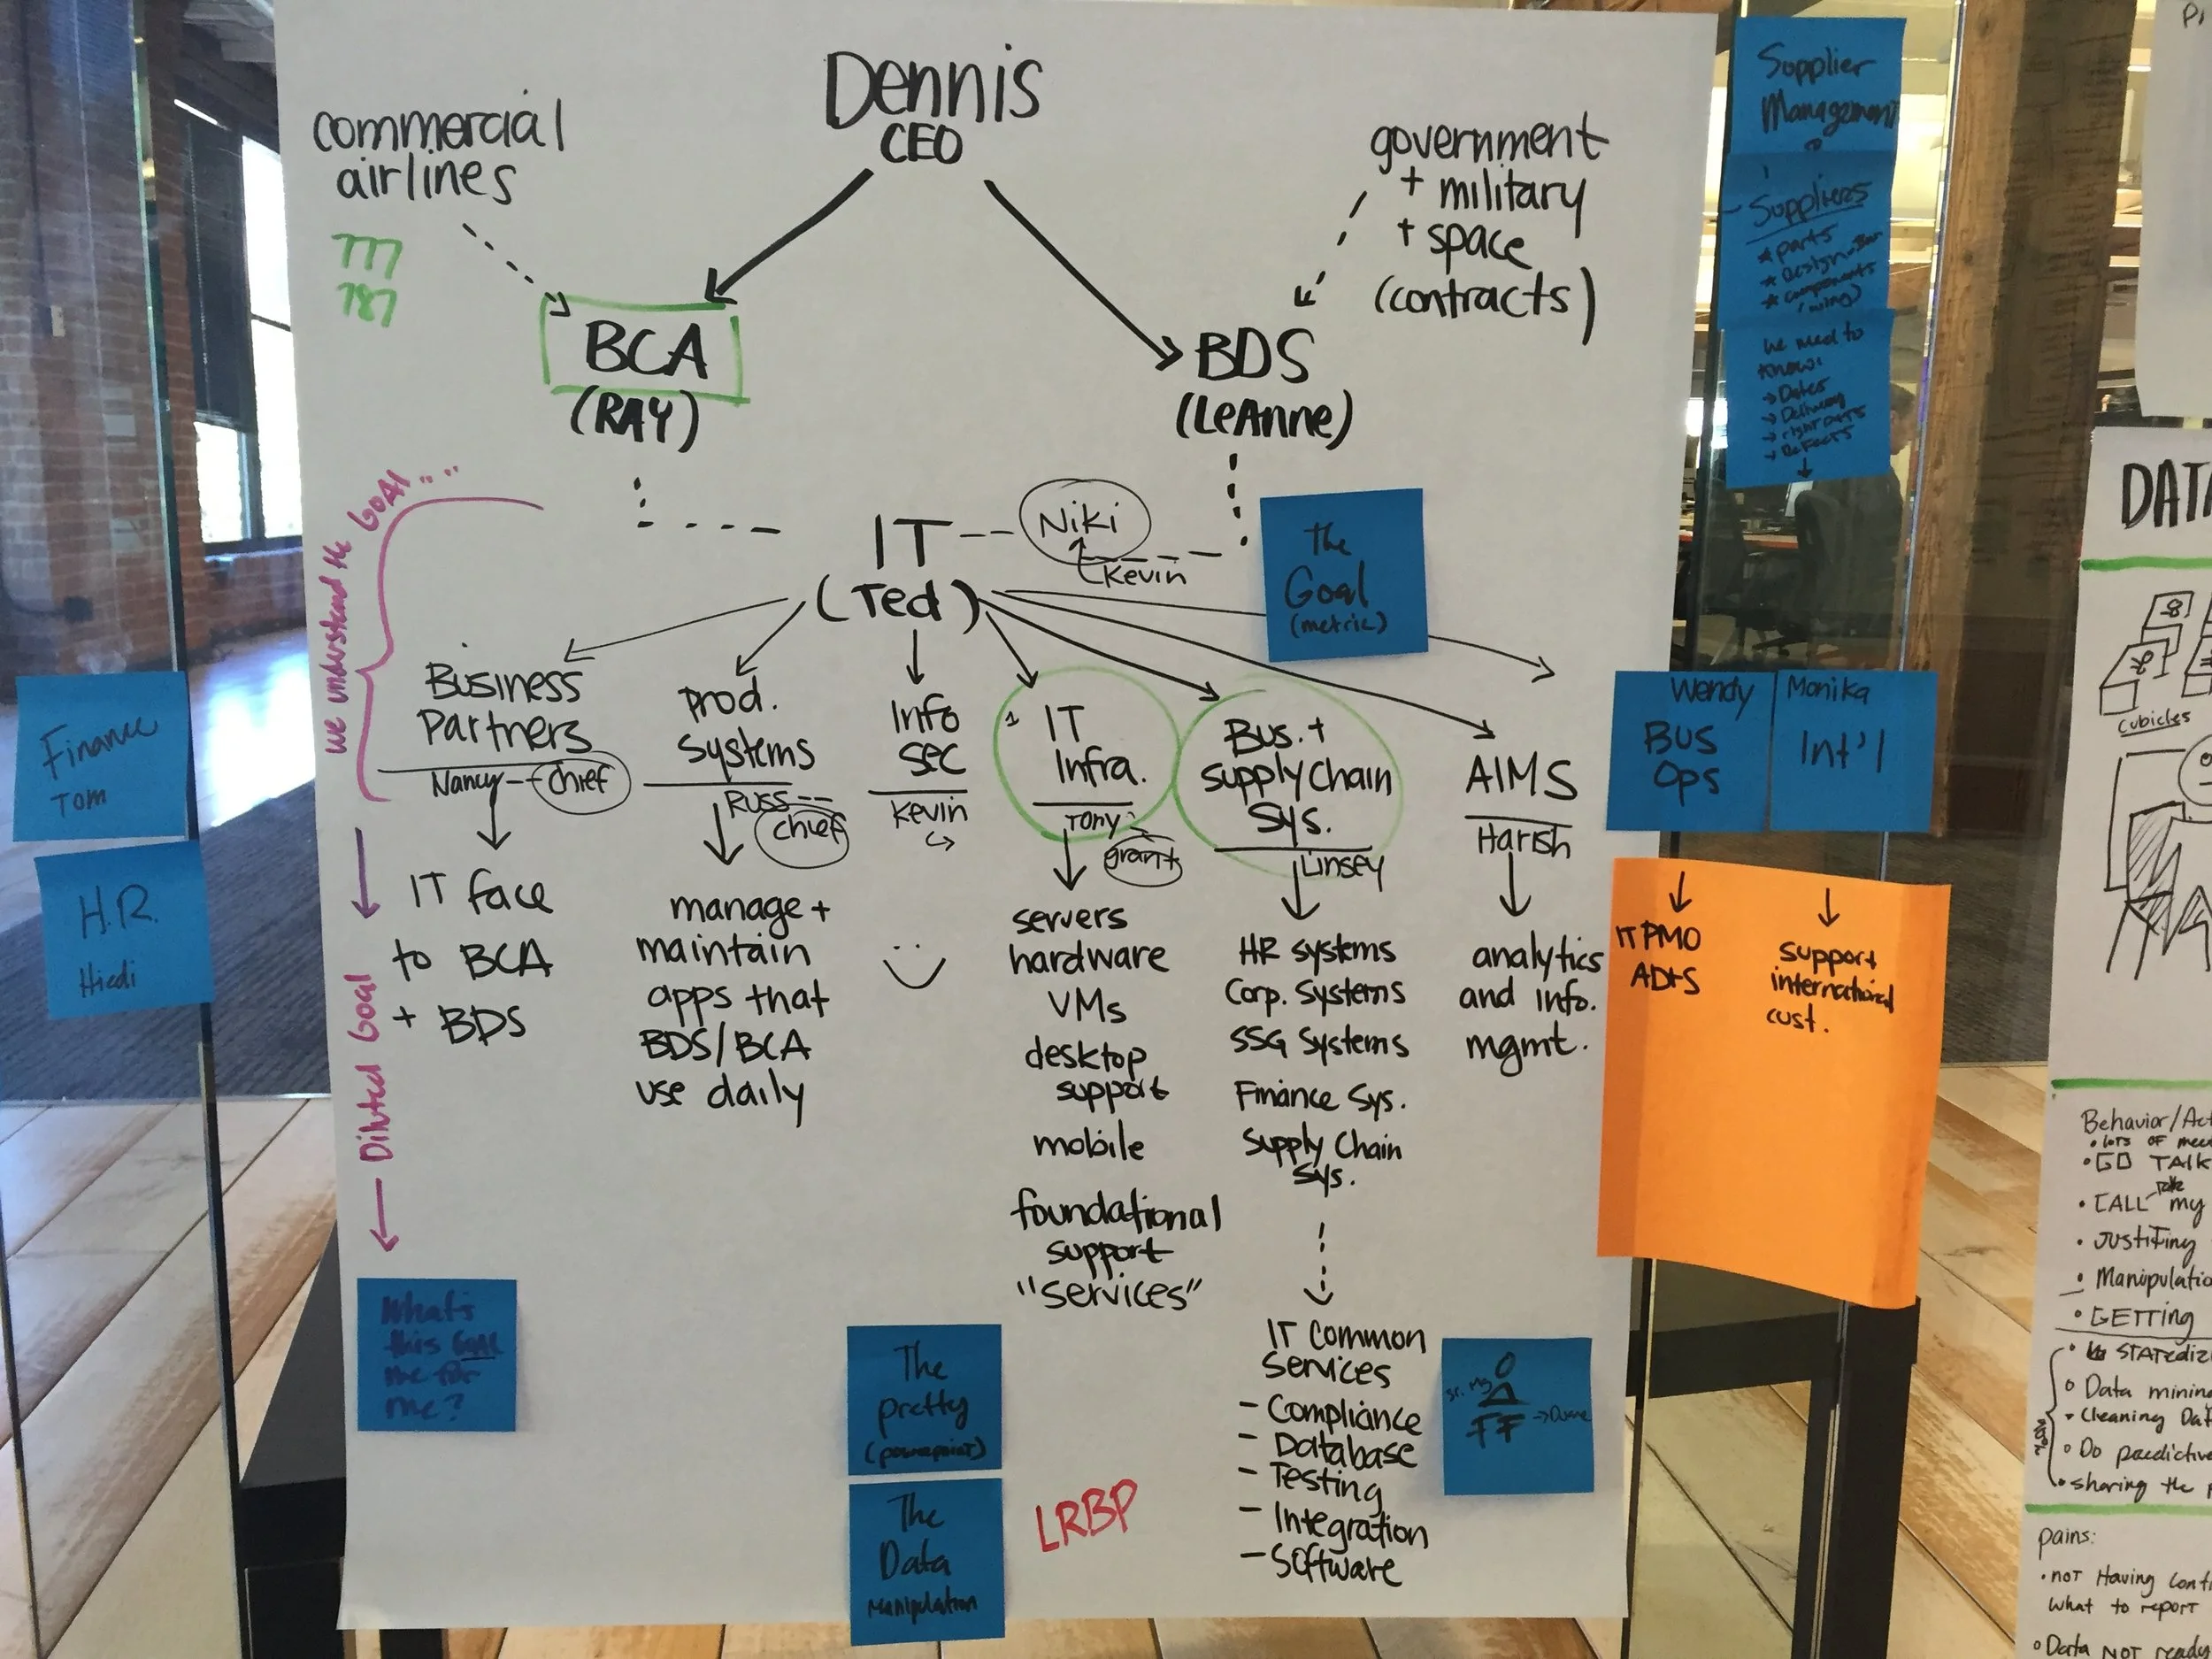 Dennis
CEO
commercial
airlines
777
787
government
+ military
+ space
(contracts)
BCA
(RAY)
BDS
(LeAnne)
we understand the GOAL....
IT
(Ted)
Niki
Kevin
The
Goal
(metric)
Business
Partners
Nancy
chief
IT face
to BCA
+ BDS
Prod.
Systems
Russ
chief
manage +
maintain
apps that
BDS/BCA
use daily
Info
Sec
Kevin
IT
Infra.
Tony
grant
servers
hardware
VMs
desktop
support
mobile
foundational
support
"services"
Bus. +
supply Chain
Sys.
Linsey
HR systems
Corp. Systems
SSG Systems
Finance Sys.
Supply Chain
Sys.
IT Common
Services
- Compliance
- Database
- Testing
- Integration
- Software
AIMS
Harish
analytics
and info.
mgmt.
Wendy
Bus
Ops
IT PMO
Monika
Int'l
support
international
cust.
Finance
Tom
H.R.
Hiedi
Diluted Goal
What's
this Goal
me for
me?
The
pretty
(powerpoint)
The
Data
Manipulation
LRBP
Supplier
Management
Suppliers
* parts
* components
(wing)
we need to
know:
→ Dates
→ Delivery
→ right parts
→ Defects
DATA
cubicles
Behavior/Act
• LOTS OF mee
• GO TALK
• CALL my
• Justifing
• Manipulatio
• GETTING
o Data mining
• Cleaning Dat
o Do predictive
• sharing the
pains:
• not Having cont
what to report
o Data not ready